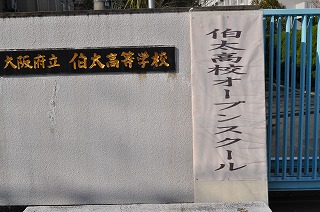 大阪府立 伯太高等学校
伯太高校オープンスクール